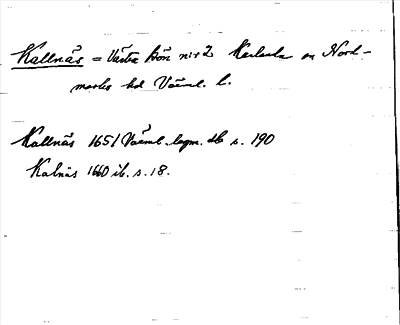 Kallnäs = Västra Bön nr 2 Karlanda sn Nord-
marks hd Värml. l.
Kallnäs 1651 Värml. lagm. db s. 190
Kalnäs 1660 ib. s. 18.